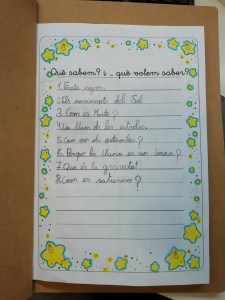 Què sabem? i .. què volem saber?
1. Forats negres.
2. Els moviments del Sol
3. Com és Mart?
4. La llum de les estrelles.
5. Com són els asteroides?
6. Perquè la lluna es un imant?
7. Que és la gravetat?
8. Com es saturno?